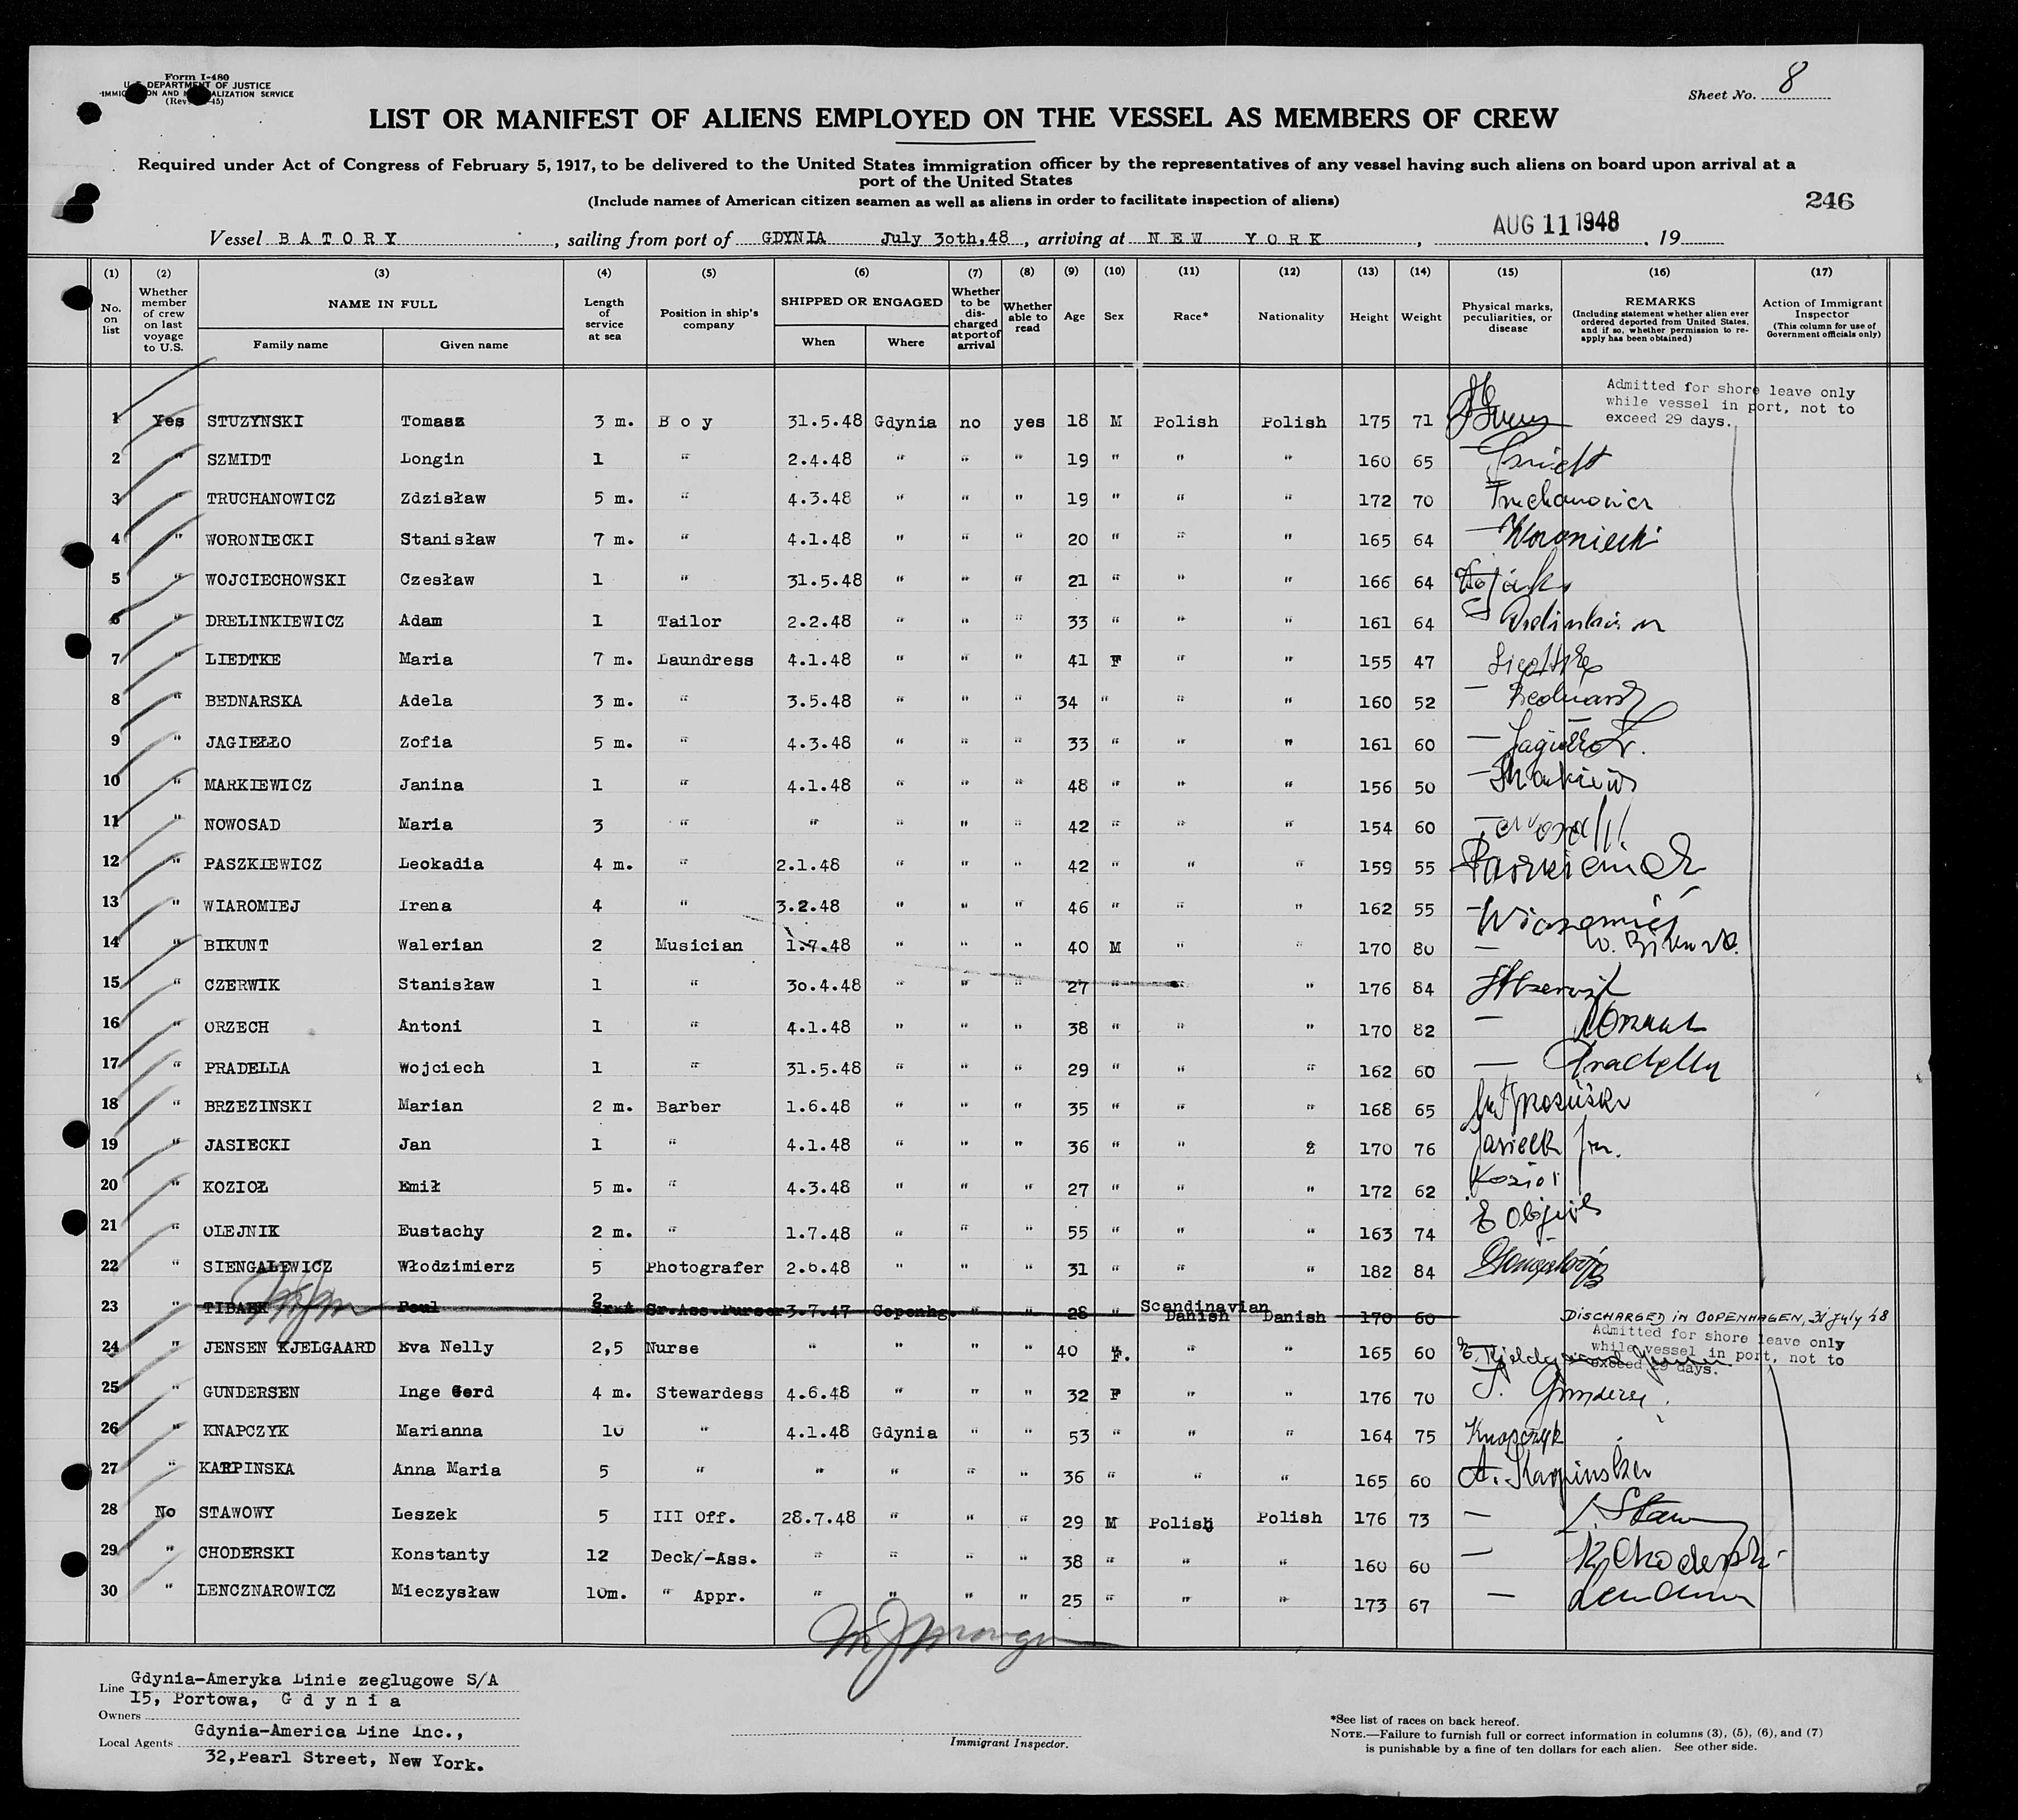 Form I-480
U. S. DEPARTMENT OF JUSTICE
IMMIGRATION AND NATURALIZATION SERVICE
(Rev. -45)
Sheet No. 8
LIST OR MANIFEST OF ALIENS EMPLOYED ON THE VESSEL AS MEMBERS OF CREW
Required under Act of Congress of February 5, 1917, to be delivered to the United States immigration officer by the representatives of any vessel having such aliens on board upon arrival at a
port of the United States
(Include names of American citizen seamen as well as aliens in order to facilitate inspection of aliens)
246
Vessel BATORY, sailing from port of GDYNIA July 30th,48, arriving at NEW YORK, AUG 11 1948, 19
(1) (2) (3) (4) (5) (6) (7) (8) (9) (10) (11) (12) (13) (14) (15) (16) (17)
No. on list
Whether member of crew on last voyage to U.S.
NAME IN FULL
Family name
Given name
Length of service at sea
Position in ship's company
SHIPPED OR ENGAGED
When
Where
Whether to be discharged at port of arrival
Whether able to read
Age
Sex
Race*
Nationality
Height
Weight
Physical marks, peculiarities, or disease
REMARKS
(Including statement whether alien ever ordered deported from United States, and if so, whether permission to reapply has been obtained)
Action of Immigrant Inspector
(This column for use of Government officials only)
Admitted for shore leave only
while vessel in port, not to
exceed 29 days.
1 Yes STUZYNSKI Tomasz 3 m. Boy 31.5.48 Gdynia no yes 18 M Polish Polish 175 71
2 " SZMIDT Longin 1 " 2.4.48 " " " 19 " " " 160 65 Szmidt
3 " TRUCHANOWICZ Zdzisław 5 m. " 4.3.48 " " " 19 " " " 172 70 Truchanowicz
4 " WORONIECKI Stanisław 7 m. " 4.1.48 " " " 20 " " " 165 64 Woroniecki
5 " WOJCIECHOWSKI Czesław 1 " 31.5.48 " " " 21 " " " 166 64
6 " DRELINKIEWICZ Adam 1 Tailor 2.2.48 " " " 33 " " " 161 64
7 " LIEDTKE Maria 7 m. Laundress 4.1.48 " " " 41 F " " 155 47 Liedtke
8 " BEDNARSKA Adela 3 m. " 3.5.48 " " " 34 " " " 160 52
9 " JAGIEŁŁO Zofia 5 m. " 4.3.48 " " " 33 " " " 161 60 Jagiełło Z.
10 " MARKIEWICZ Janina 1 " 4.1.48 " " " 48 " " " 156 50 Markiewicz
11 " NOWOSAD Maria 3 " " " " " 42 " " " 154 60
12 " PASZKIEWICZ Leokadia 4 m. " 2.1.48 " " " 42 " " " 159 55 Paszkiewicz
13 " WIAROMIEJ Irena 4 " 3.2.48 " " " 46 " " " 162 55 Wiaromiej
14 " BIKUNT Walerian 2 Musician 1.7.48 " " " 40 M " " 170 80 — W. Bikunt
15 " CZERWIK Stanisław 1 " 30.4.48 " " " 27 " " " 176 84 St Czerwik
16 " ORZECH Antoni 1 " 4.1.48 " " " 38 " " " 170 82 —
17 " PRADELLA Wojciech 1 " 31.5.48 " " " 29 " " " 162 60 — Pradella
18 " BRZEZINSKI Marian 2 m. Barber 1.6.48 " " " 35 " " " 168 65
19 " JASIECKI Jan 1 " 4.1.48 " " " 36 " " 2 170 76 Jasiecki Jan.
20 " KOZIOŁ Emił 5 m. " 4.3.48 " " " 27 " " " 172 62 Kozioł
21 " OLEJNIK Eustachy 2 m. " 1.7.48 " " " 55 " " " 163 74 E Olejnik
22 " SIENGALEWICZ Włodzimierz 5 Photografer 2.6.48 " " " 31 " " " 182 84
23 " TIBAEK Poul 2 Sr.Ass.Purser 3.7.47 Copenhg. " " 28 " Scandinavian Danish Danish 170 60 DISCHARGED IN COPENHAGEN, 31 July 48
Admitted for shore leave only
while vessel in port, not to
exceed 29 days.
24 " JENSEN KJELGAARD Eva Nelly 2,5 Nurse " " " " 40 F. " " 165 60
25 " GUNDERSEN Inge Gerd 4 m. Stewardess 4.6.48 " " " 32 F " " 176 70 I. Gundersen
26 " KNAPCZYK Marianna 10 " 4.1.48 Gdynia " " 53 " " " 164 75 Knapczyk
27 " KARPINSKA Anna Maria 5 " " " " " 36 " " " 165 60 A. Karpinska
28 No STAWOWY Leszek 5 III Off. 28.7.48 " " " 29 M Polish Polish 176 73 —
29 " CHODERSKI Konstanty 12 Deck/-Ass. " " " " 38 " " " 160 60 — K. Choderski
30 " LENCZNAROWICZ Mieczysław 10m. " Appr. " " " " 25 " " " 173 67 —
Line Gdynia-Ameryka Linie zeglugowe S/A
15, Portowa, Gdynia
Owners
Gdynia-America Line Inc.,
Local Agents
32,Pearl Street, New York.
Immigrant Inspector.
*See list of races on back hereof.
NOTE.—Failure to furnish full or correct information in columns (3), (5), (6), and (7)
is punishable by a fine of ten dollars for each alien. See other side.